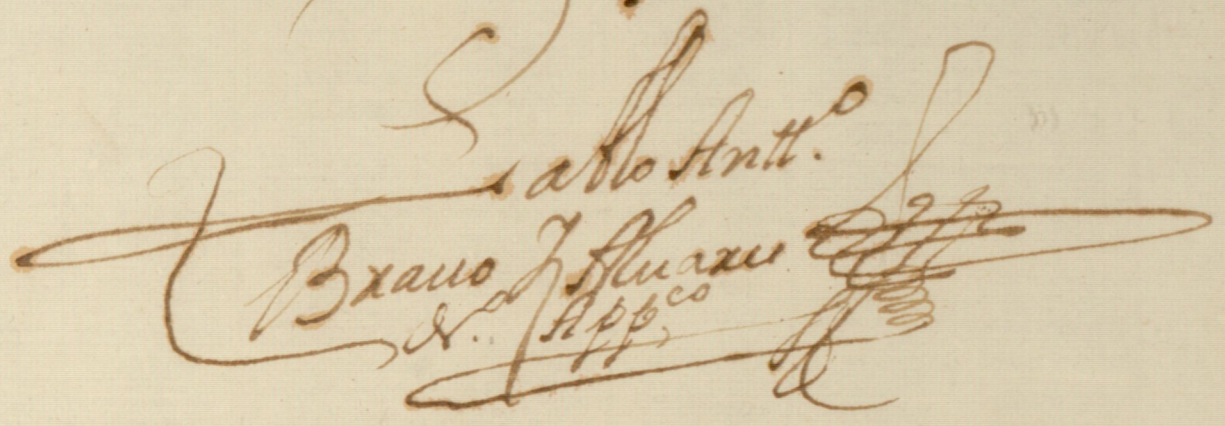 Pablo Antt.º
Brauo Y Aluarez
N.º App.co